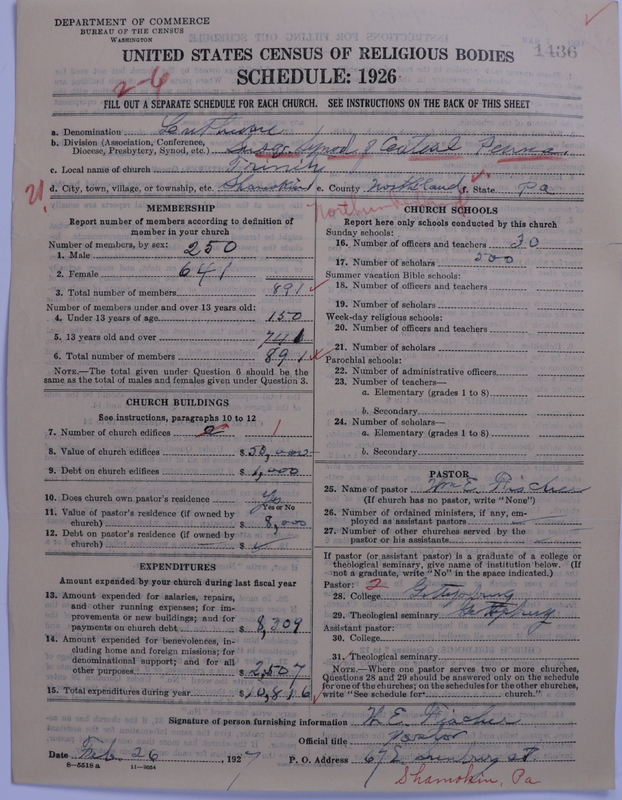 DEPARTMENT OF COMMERCE
BUREAU OF THE CENSUS
WASHINGTON
1436
UNITED STATES CENSUS OF RELIGIOUS BODIES
SCHEDULE: 1926
2-6
FILL OUT A SEPARATE SCHEDULE FOR EACH CHURCH. SEE INSTRUCTIONS ON THE BACK OF THIS SHEET
a. Denomination Lutheran
b. Division (Association, Conference,
Diocese, Presbytery, Synod, etc.) Synod of Central Penna.
c. Local name of church Trinity
d. City, town, village, or township, etc. Shamokin e. County Northland f. State Pa
Northumberland
MEMBERSHIP
Report number of members according to definition of
member in your church
Number of members, by sex:
1. Male 250
2. Female 641
3. Total number of members 891
Number of members under and over 13 years old:
4. Under 13 years of age 150
5. 13 years old and over 741
6. Total number of members 891
NOTE.—The total given under Question 6 should be the
same as the total of males and females given under Question 3.
CHURCH BUILDINGS
See instructions, paragraphs 10 to 12
7. Number of church edifices 1
8. Value of church edifices $
9. Debt on church edifices $
10. Does church own pastor's residence Yes
Yes or No
11. Value of pastor's residence (if owned by
church) $ 8,000
12. Debt on pastor's residence (if owned by
church) $
EXPENDITURES
Amount expended by your church during last fiscal year
13. Amount expended for salaries, repairs,
and other running expenses; for im-
provements or new buildings; and for
payments on church debt $ 8,309
14. Amount expended for benevolences, in-
cluding home and foreign missions; for
denominational support; and for all
other purposes $ 2,507
15. Total expenditures during year $ 10,816
CHURCH SCHOOLS
Report here only schools conducted by this church
Sunday schools:
16. Number of officers and teachers 30
17. Number of scholars 500
Summer vacation Bible schools:
18. Number of officers and teachers
19. Number of scholars
Week-day religious schools:
20. Number of officers and teachers
21. Number of scholars
Parochial schools:
22. Number of administrative officers
23. Number of teachers—
a. Elementary (grades 1 to 8)
b. Secondary
24. Number of scholars—
a. Elementary (grades 1 to 8)
b. Secondary
PASTOR
25. Name of pastor Wm E. Fischer
(If church has no pastor, write "None")
26. Number of ordained ministers, if any, em-
ployed as assistant pastors
27. Number of other churches served by the
pastor or his assistants
If pastor (or assistant pastor) is a graduate of a college or
theological seminary, give name of institution below. (If
not a graduate, write "No" in the space indicated.)
Pastor: 2
28. College Gettysburg
29. Theological seminary Gettysburg
Assistant pastor:
30. College
31. Theological seminary
NOTE.—Where one pastor serves two or more churches,
Questions 28 and 29 should be answered only on the schedule
for one of the churches; on the schedules for the other churches,
write "See schedule for church."
Signature of person furnishing information W. E. Fischer
Official title Pastor
Date Feb. 26, 1927 P. O. Address
Shamokin, Pa
8-5518 a 11-9054